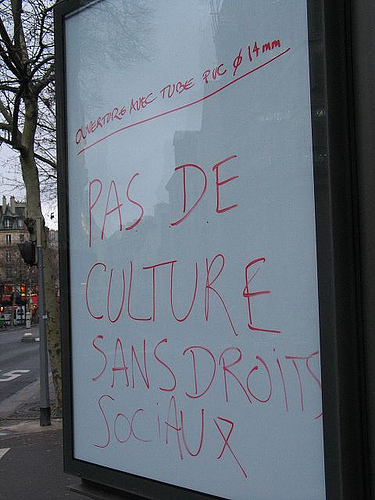 OUVERTURE AVEC TUBE PVC Ø 14mm
PAS DE
CULTURE
SANS DROITS
SOCIAUX